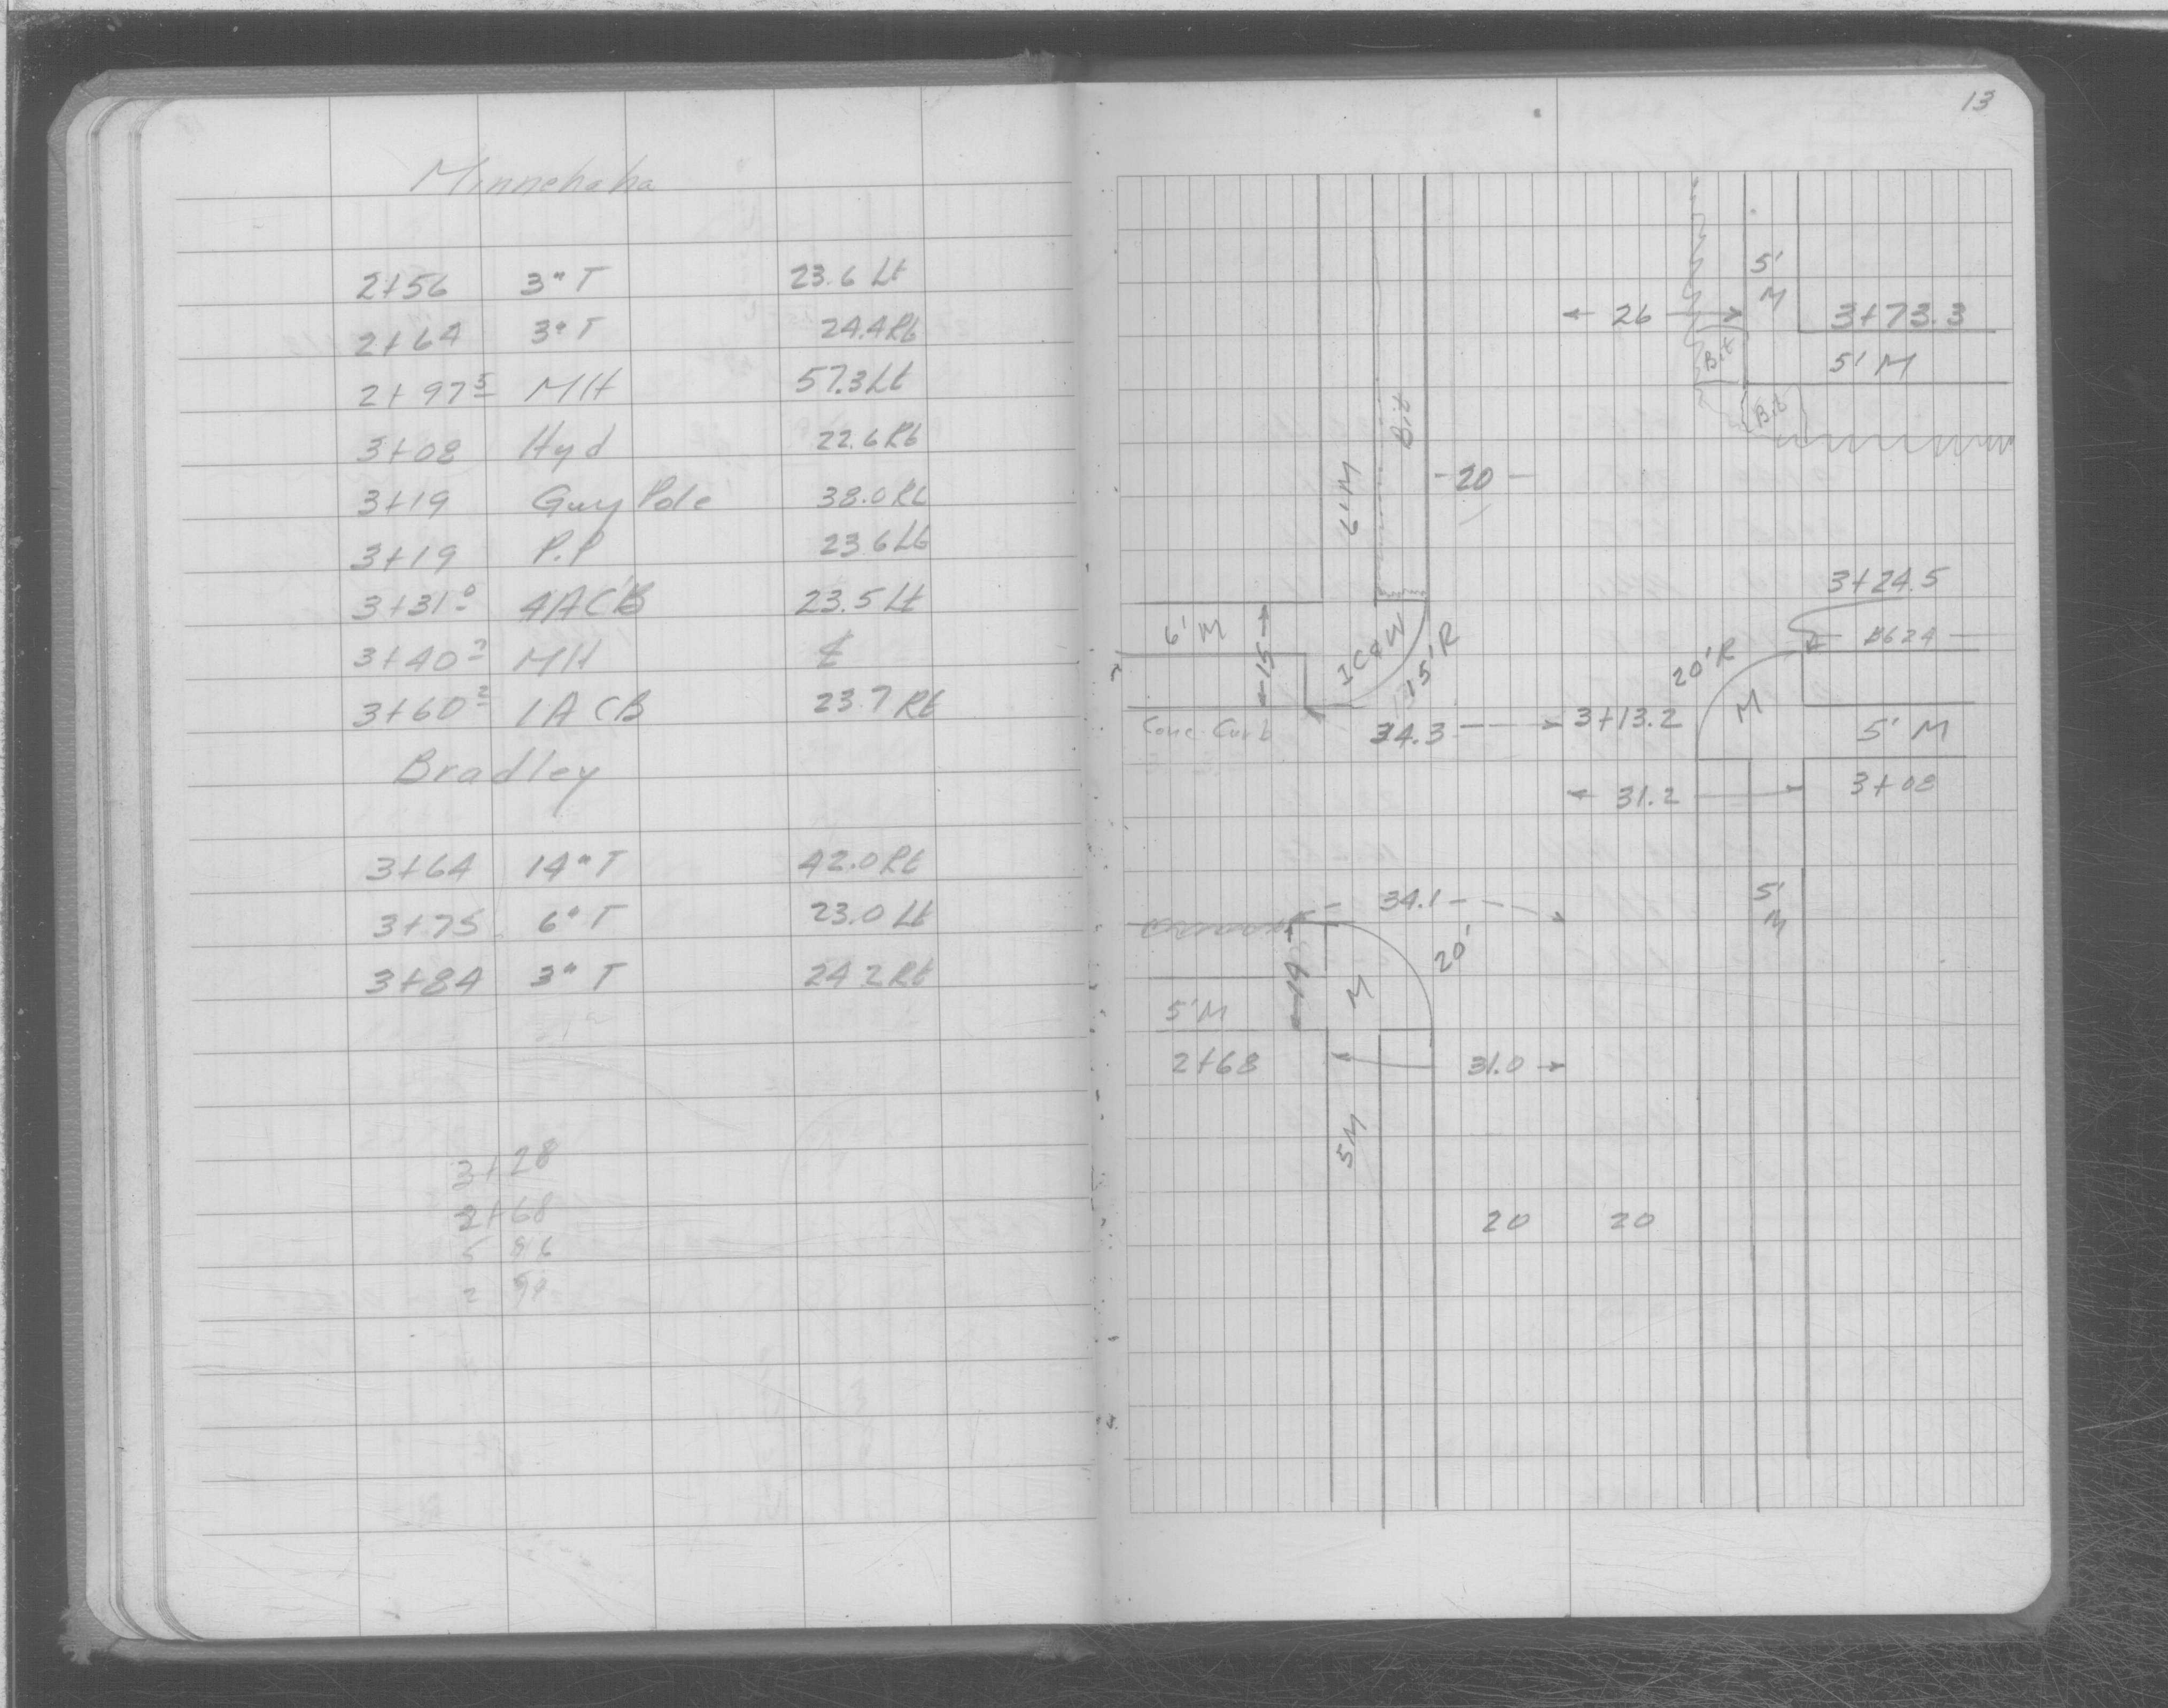 Minnehaha
2+56 3" T 23.6 Lt
2+64 3" T 24.4 Rt
2+97 5 MH 57.3 Lt
3+08 Hyd 22.6 Rt
3+19 Guy Pole 38.0 Rt
3+19 P.P 23.6 Lt
3+31 0 4A CB 23.5 Lt
3+40 MH ℄
3+60 2 1A CB 23.7 Rt
Bradley
3+64 14" T 42.0 Rt
3+75 6" T 23.0 Lt
3+84 3" T 24.2 Rt
3+28
2+68
13
5'
M
26
3+73.3
Bit
5' M
Bit
Bit
6' M
20
3+24.5
6' M
15
15' R
20' R
M
Conc Curb
34.3
3+13.2
5' M
31.2
3+08
34.1
5'
M
20'
19
M
5' M
2+68
31.0
5 M
20 20